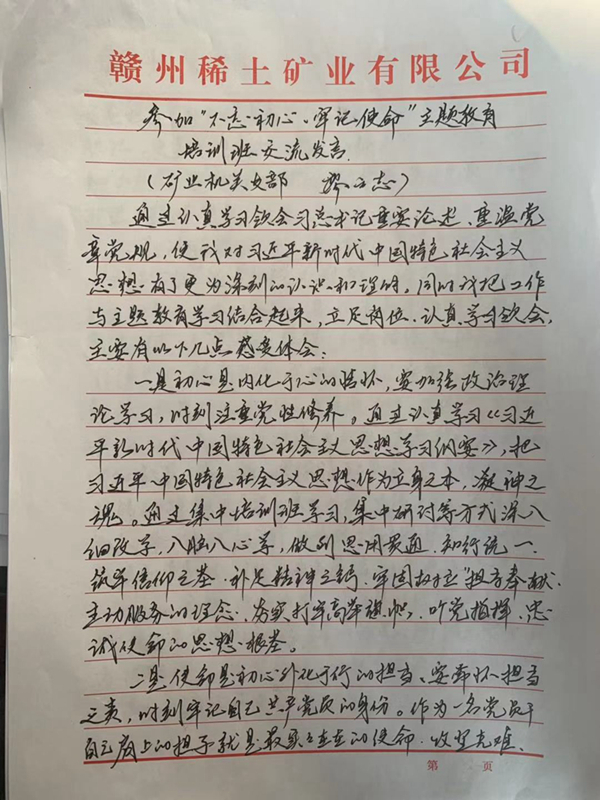 赣州稀土矿业有限公司
参加“不忘初心、牢记使命”主题教育
培训班交流发言
（矿业机关支部 志）
通过认真学习领会习总书记重要论述、重温党
章党规，使我对习近平新时代中国特色社会主义
思想有了更为深刻的认识和理解，同时我把工作
与主题教育学习结合起来，立足岗位、认真学习领会，
主要有以下几点感受体会：
一是初心是内化于心的情怀，要加强政治理
论学习，时刻注重党性修养。通过认真学习《习近
平新时代中国特色社会主义思想学习纲要》，把
习近平中国特色社会主义思想作为立身之本，凝神之
魂。通过集中培训班学习，集中研讨等方式深入
细致学，入脑入心学，做到思用贯通、知行统一、
筑牢信仰之基、补足精神之钙、牢固树立“担当奉献、
主动服务的理念，夯实打牢高举旗帜、听党指挥、忠
诚使命的思想根基。
二是使命是初心外化于行的担当、要常怀担当
之责，时刻牢记自己共产党员的身份。作为一名党员干
自己肩上的担子就是最实实在在的使命，攻坚克难、
第 页